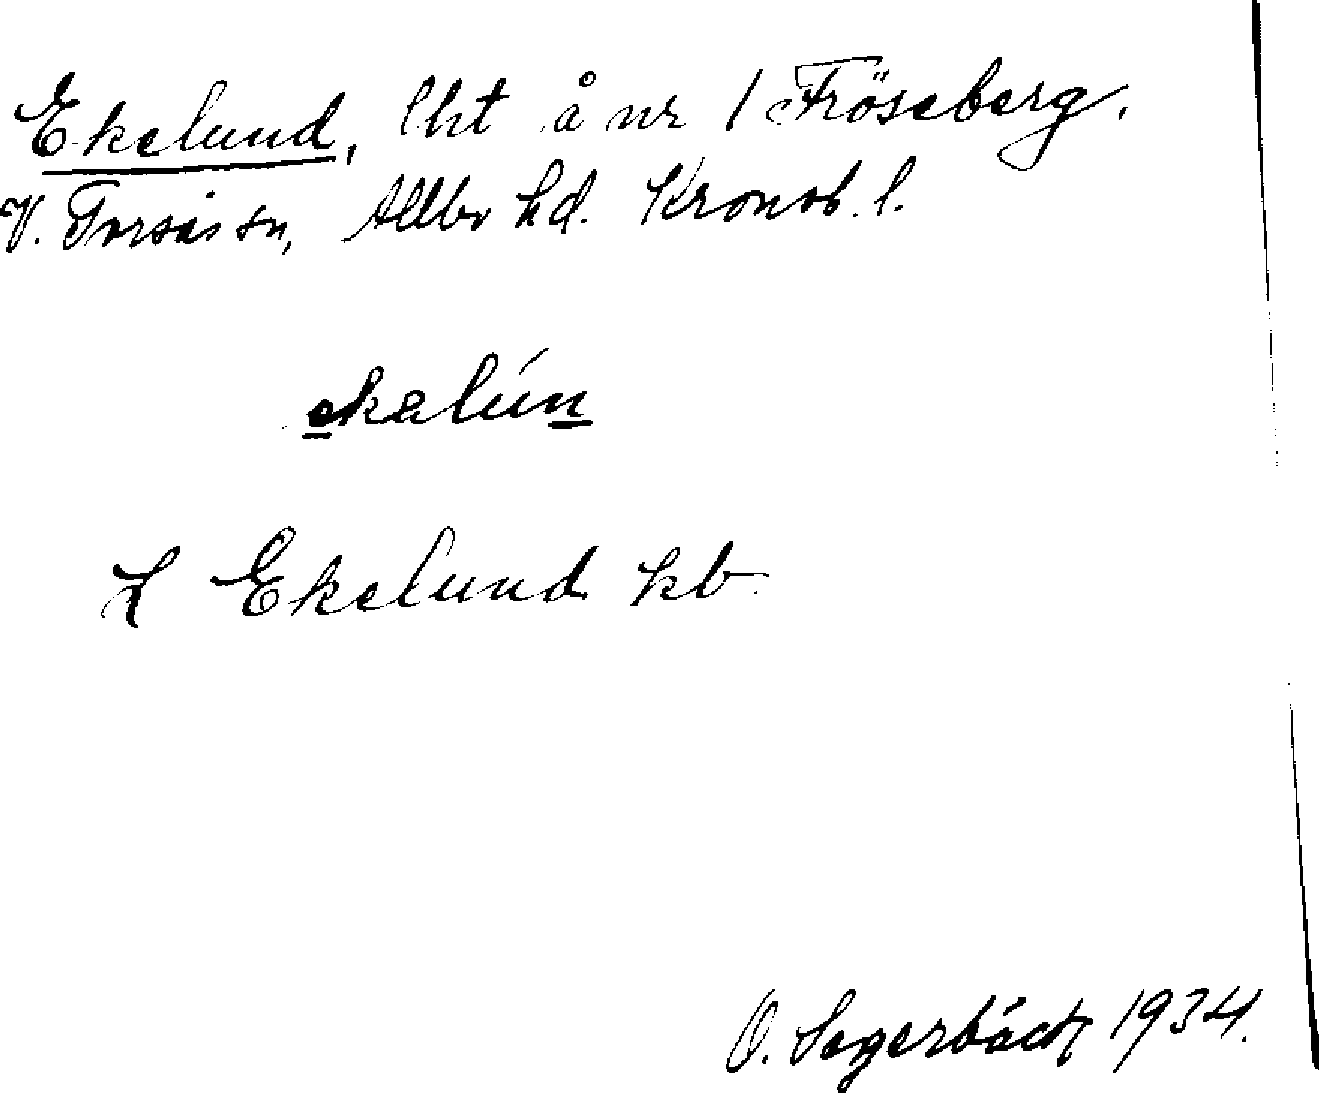 Ekelund, lht å nr 1 Fröseberg.
V. Torsås sn, Allbo hd. Kronob. l.
ekalún
L Ekelund kb
O. Segerbäck 1934.